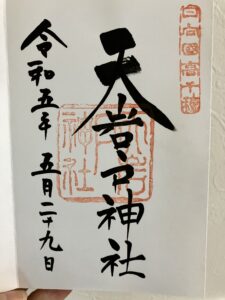 日向國高千穂
天岩戸神社
令和五年 五月二十九日